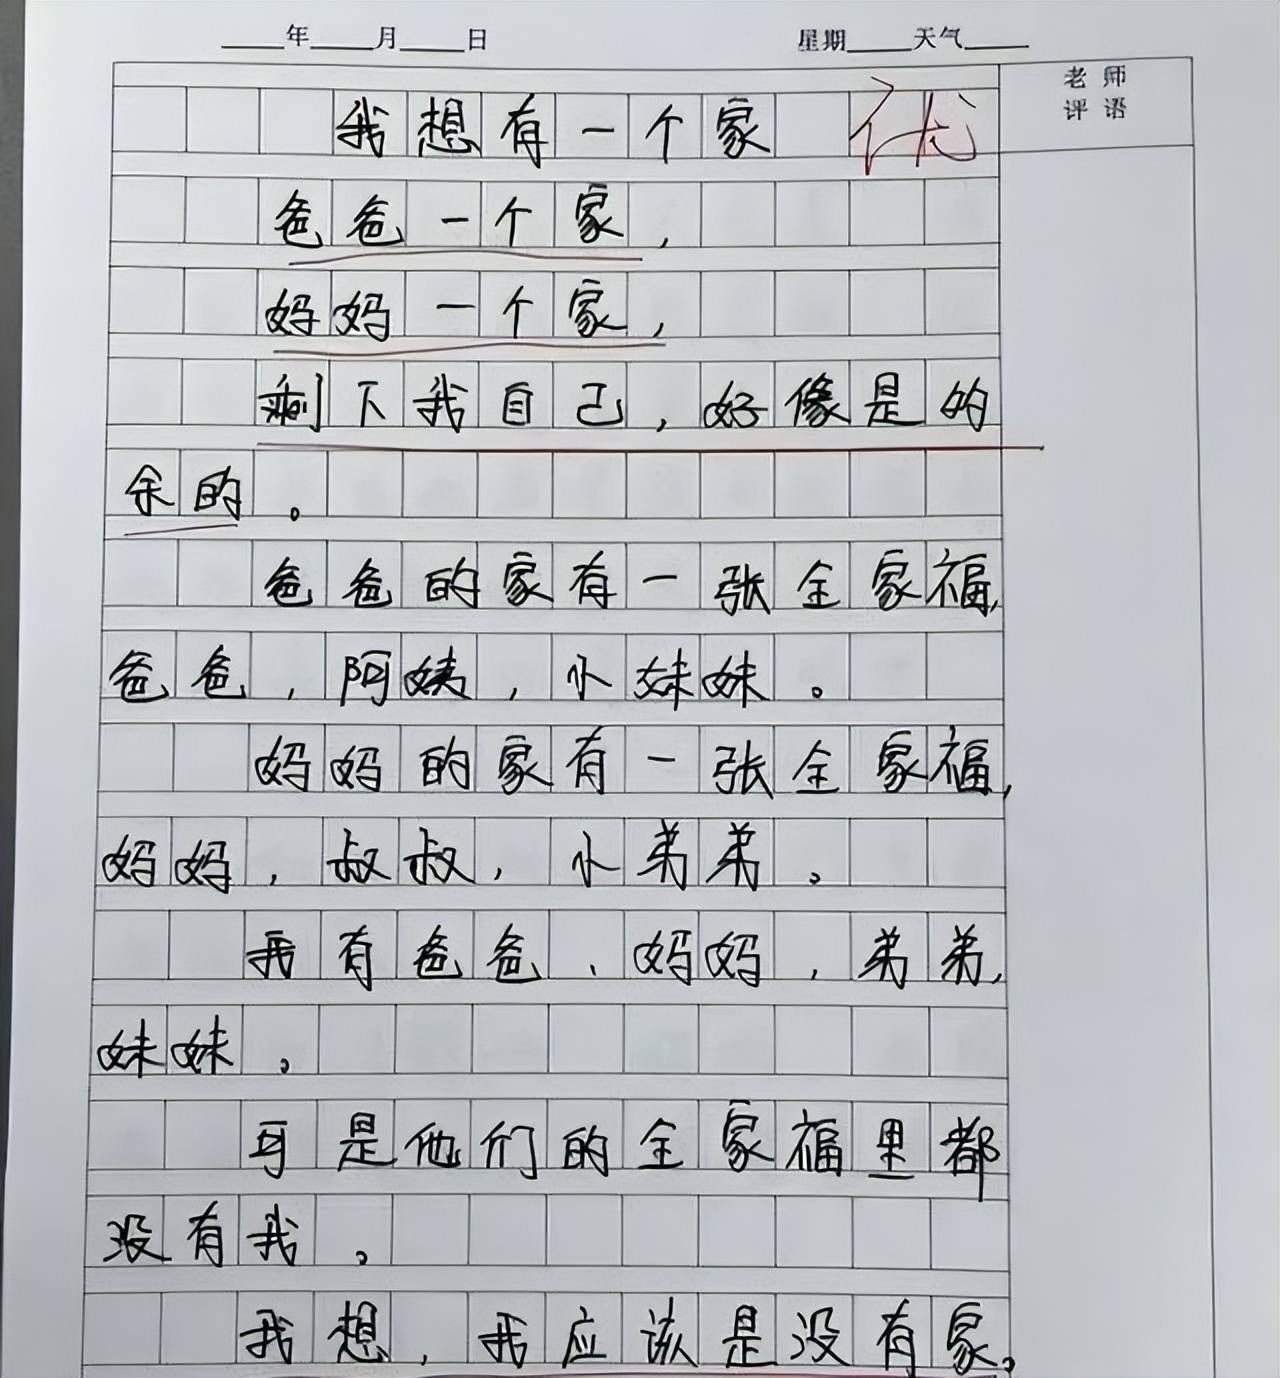 年 月 日 星期 天气
老师
评语
我想有一个家 优
爸爸一个家，
妈妈一个家，
剩下我自己，好像是的
余的。
爸爸的家有一张全家福，
爸爸，阿姨，小妹妹。
妈妈的家有一张全家福，
妈妈，叔叔，小弟弟。
我有爸爸、妈妈，弟弟，
妹妹。
可是他们的全家福里都
没有我。
我想，我应该是没有家。